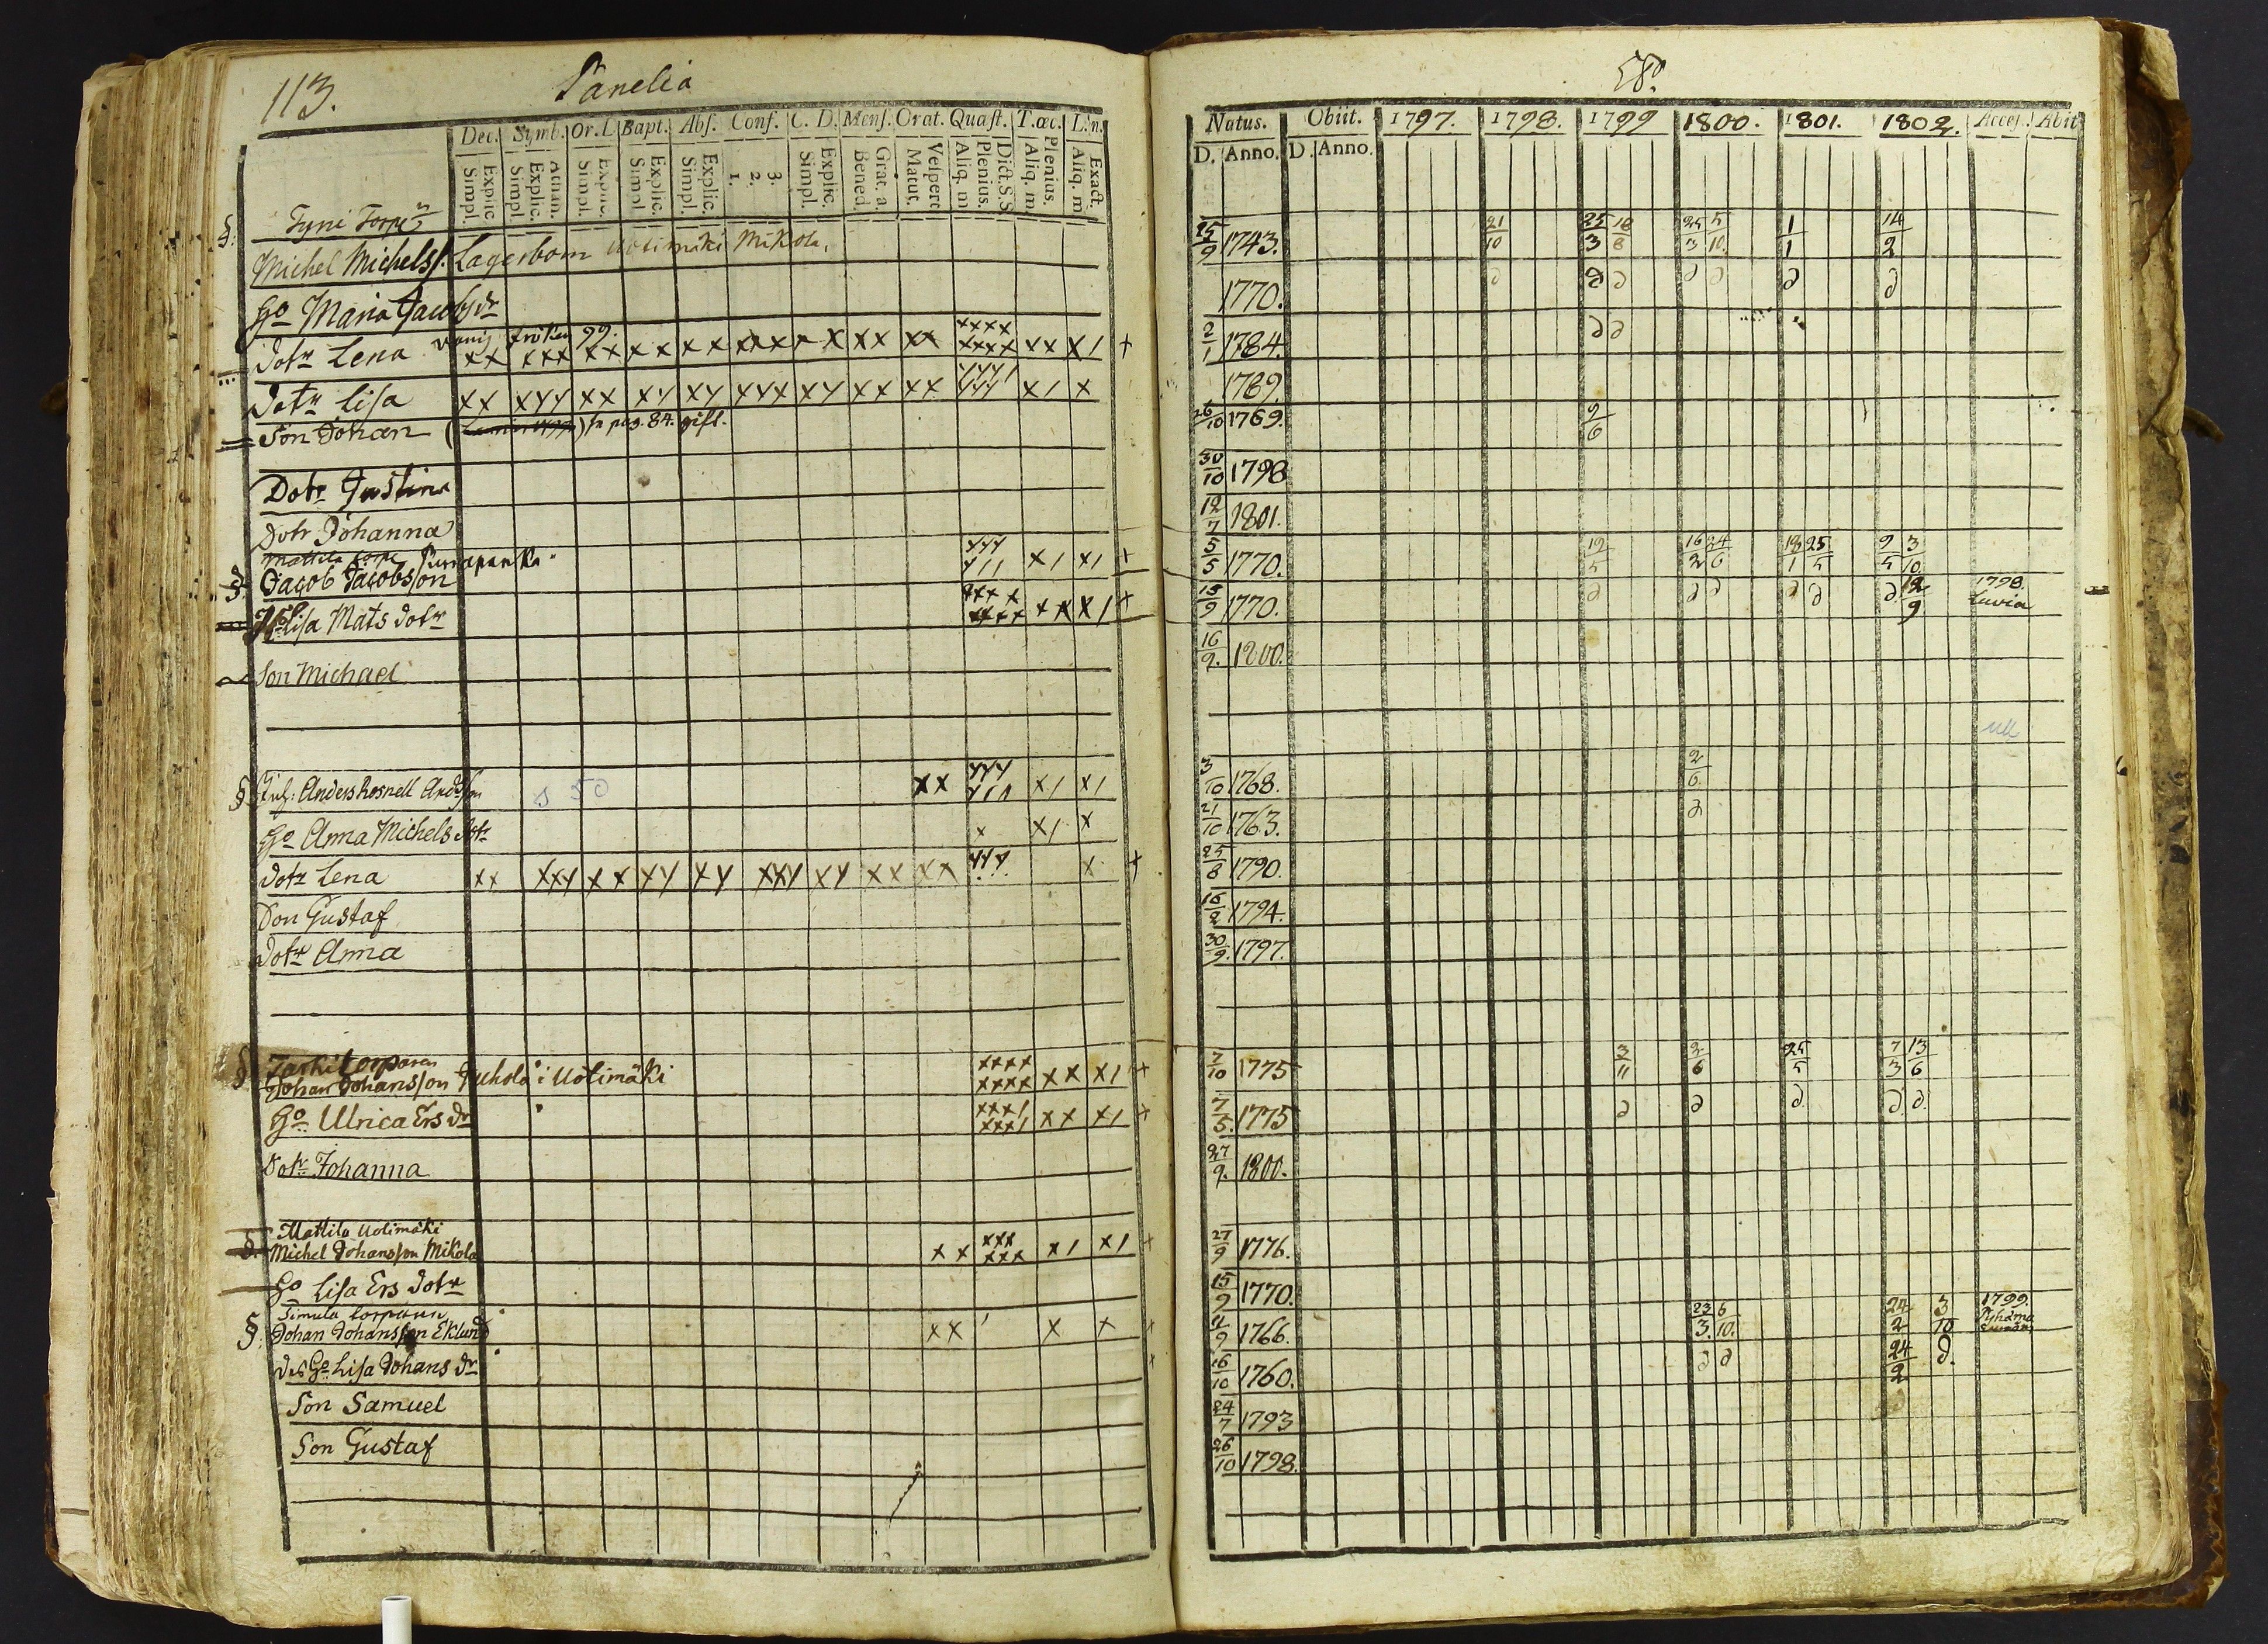 113. Panelia
Dec. Symb. Or. L. Bapt. Abs. Conf. C. D. Mens. Orat. Quæst. T. œc. L. in.
Explic. Simpl. Athan. Explic. Simpl. Explic. Simpl. Explic. Simpl. Explic. Simpl. 3. 2. 1. Explic. Simpl. Grat. a. Bened. Vespert. Matut. Dict. S.S. Plenius. Aliq. m Plenius. Aliq. m. Exact. Aliq. m
Tyni Torp
Michel Michelss. Lagerbom Uotimäki Mikola.
Ho Maria Jacobs dr
Dotr Lena xx xxx xx xx xx xxx xx xx xxxx xxxx xx x/ +
Dotr Lisa xx xyy xx xy xy yyx xy xx xx x/ x
Son Johan fr pag. 84. gift.
Dotr Justina
Dotr Johanna
Mattila torp
§. Jacob Jacobsson x/ x/ +
Lisa Mats dotr xx x/ +
Son Michael
§ Anders Rosnell xx x/ x/
Ho Anna Michels dotr x x/ x
dotr Lena xx xxy xx xy xy xxy xy xx xx yyy x +
Son Gustaf
dotr Anna
§ torparen
Johan Johansson Juhola i Uotimäki xxxx xxxx xx x/ +
Ho Ulrica Ers dr xxx/ xxx/ xx x/ +
Dotr Johanna
Mattila Uotimäki
Michel Johansson Mikola xx xxx xxx x/ x/ +
Ho Lisa Ers dotr
Simula torparen
§. Johan Johansson Eklund xx / x x
des Ho Lisa Johans dr
Son Samuel
Son Gustaf
58.
Natus. Obiit. 1797. 1798. 1799 1800. 1801. 1802. Acces. Abit
D. Anno. D. Anno.
25/9 1743. 21/10 25/3 18/8 25/3 5/10. 1/1 14/2
1770. d d d d d d d
2/1 1784. d d
1789.
26/10 1769. 9/6
30/10 1798
12/7 1801.
5/5 1770. 19/5 16/2 24/6 18/1 25/5 9/5 3/10
15/9 1770. d d d d d d 12/9 1798 Luvia
16/9. 1800.
3/10 1768. 2/6
21/10 1763. d
25/8 1790.
16/2 1794.
30/9. 1797.
7/10 1775 3/11 2/6 25/5 7/3 13/6
7/5. 1775 d d d d. d.
27/9. 1800.
27/9 1776.
15/9 1770.
11/9 1766. 23/3. 6/10. 24/2 3/10 1799.
16/10 1760. d d 24/2 d.
24/7 1793
26/10 1798.